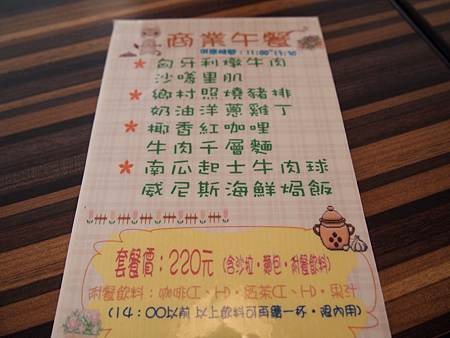 商業午餐
供應時間：11:00~13:30
匈牙利燉牛肉
沙嗲里肌
鄉村照燒豬排
奶油洋蔥雞丁
椰香紅咖哩
牛肉千層麵
南瓜起士牛肉球
威尼斯海鮮焗飯
套餐價：220元（含沙拉・麵包・附餐飲料）
附餐飲料：咖啡(I、H)・奶茶(I、H)・果汁
（14：00以前 以上飲料可再續一杯・限內用）